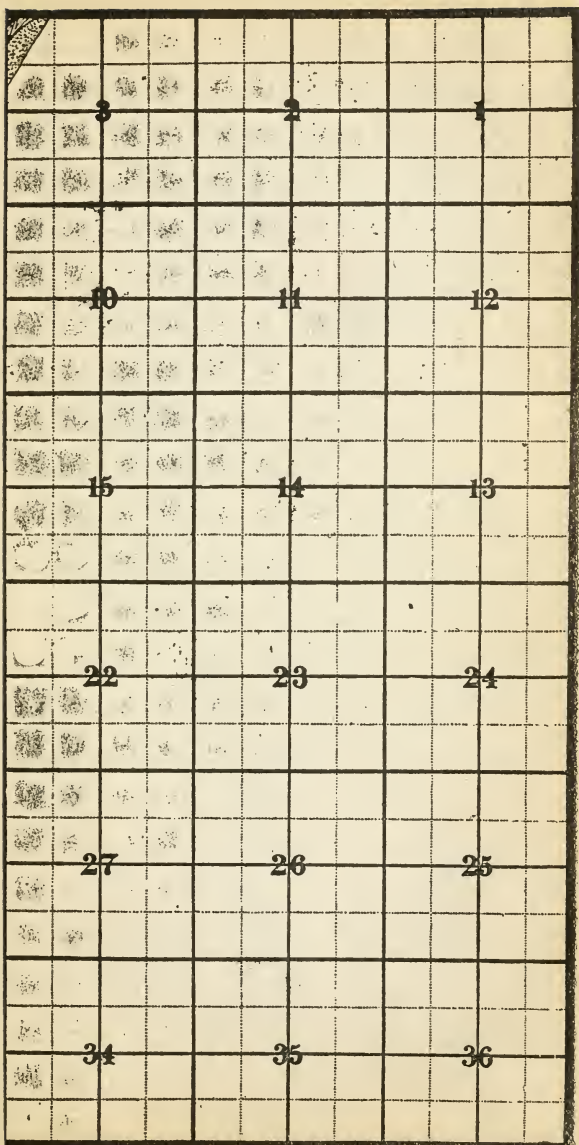 3 2 1
10 11 12
15 14 13
22 23 24
27 26 25
34 35 36